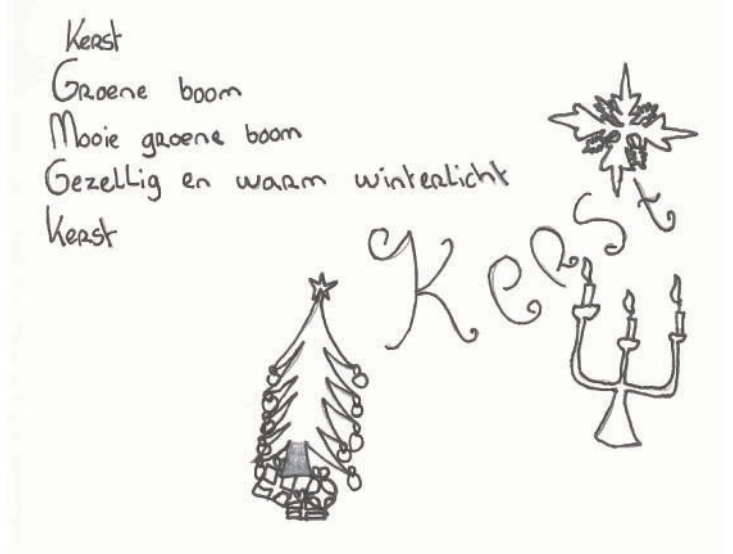 Kerst
Groene boom
Mooie groene boom
Gezellig en warm winterlicht
Kerst
Kerst